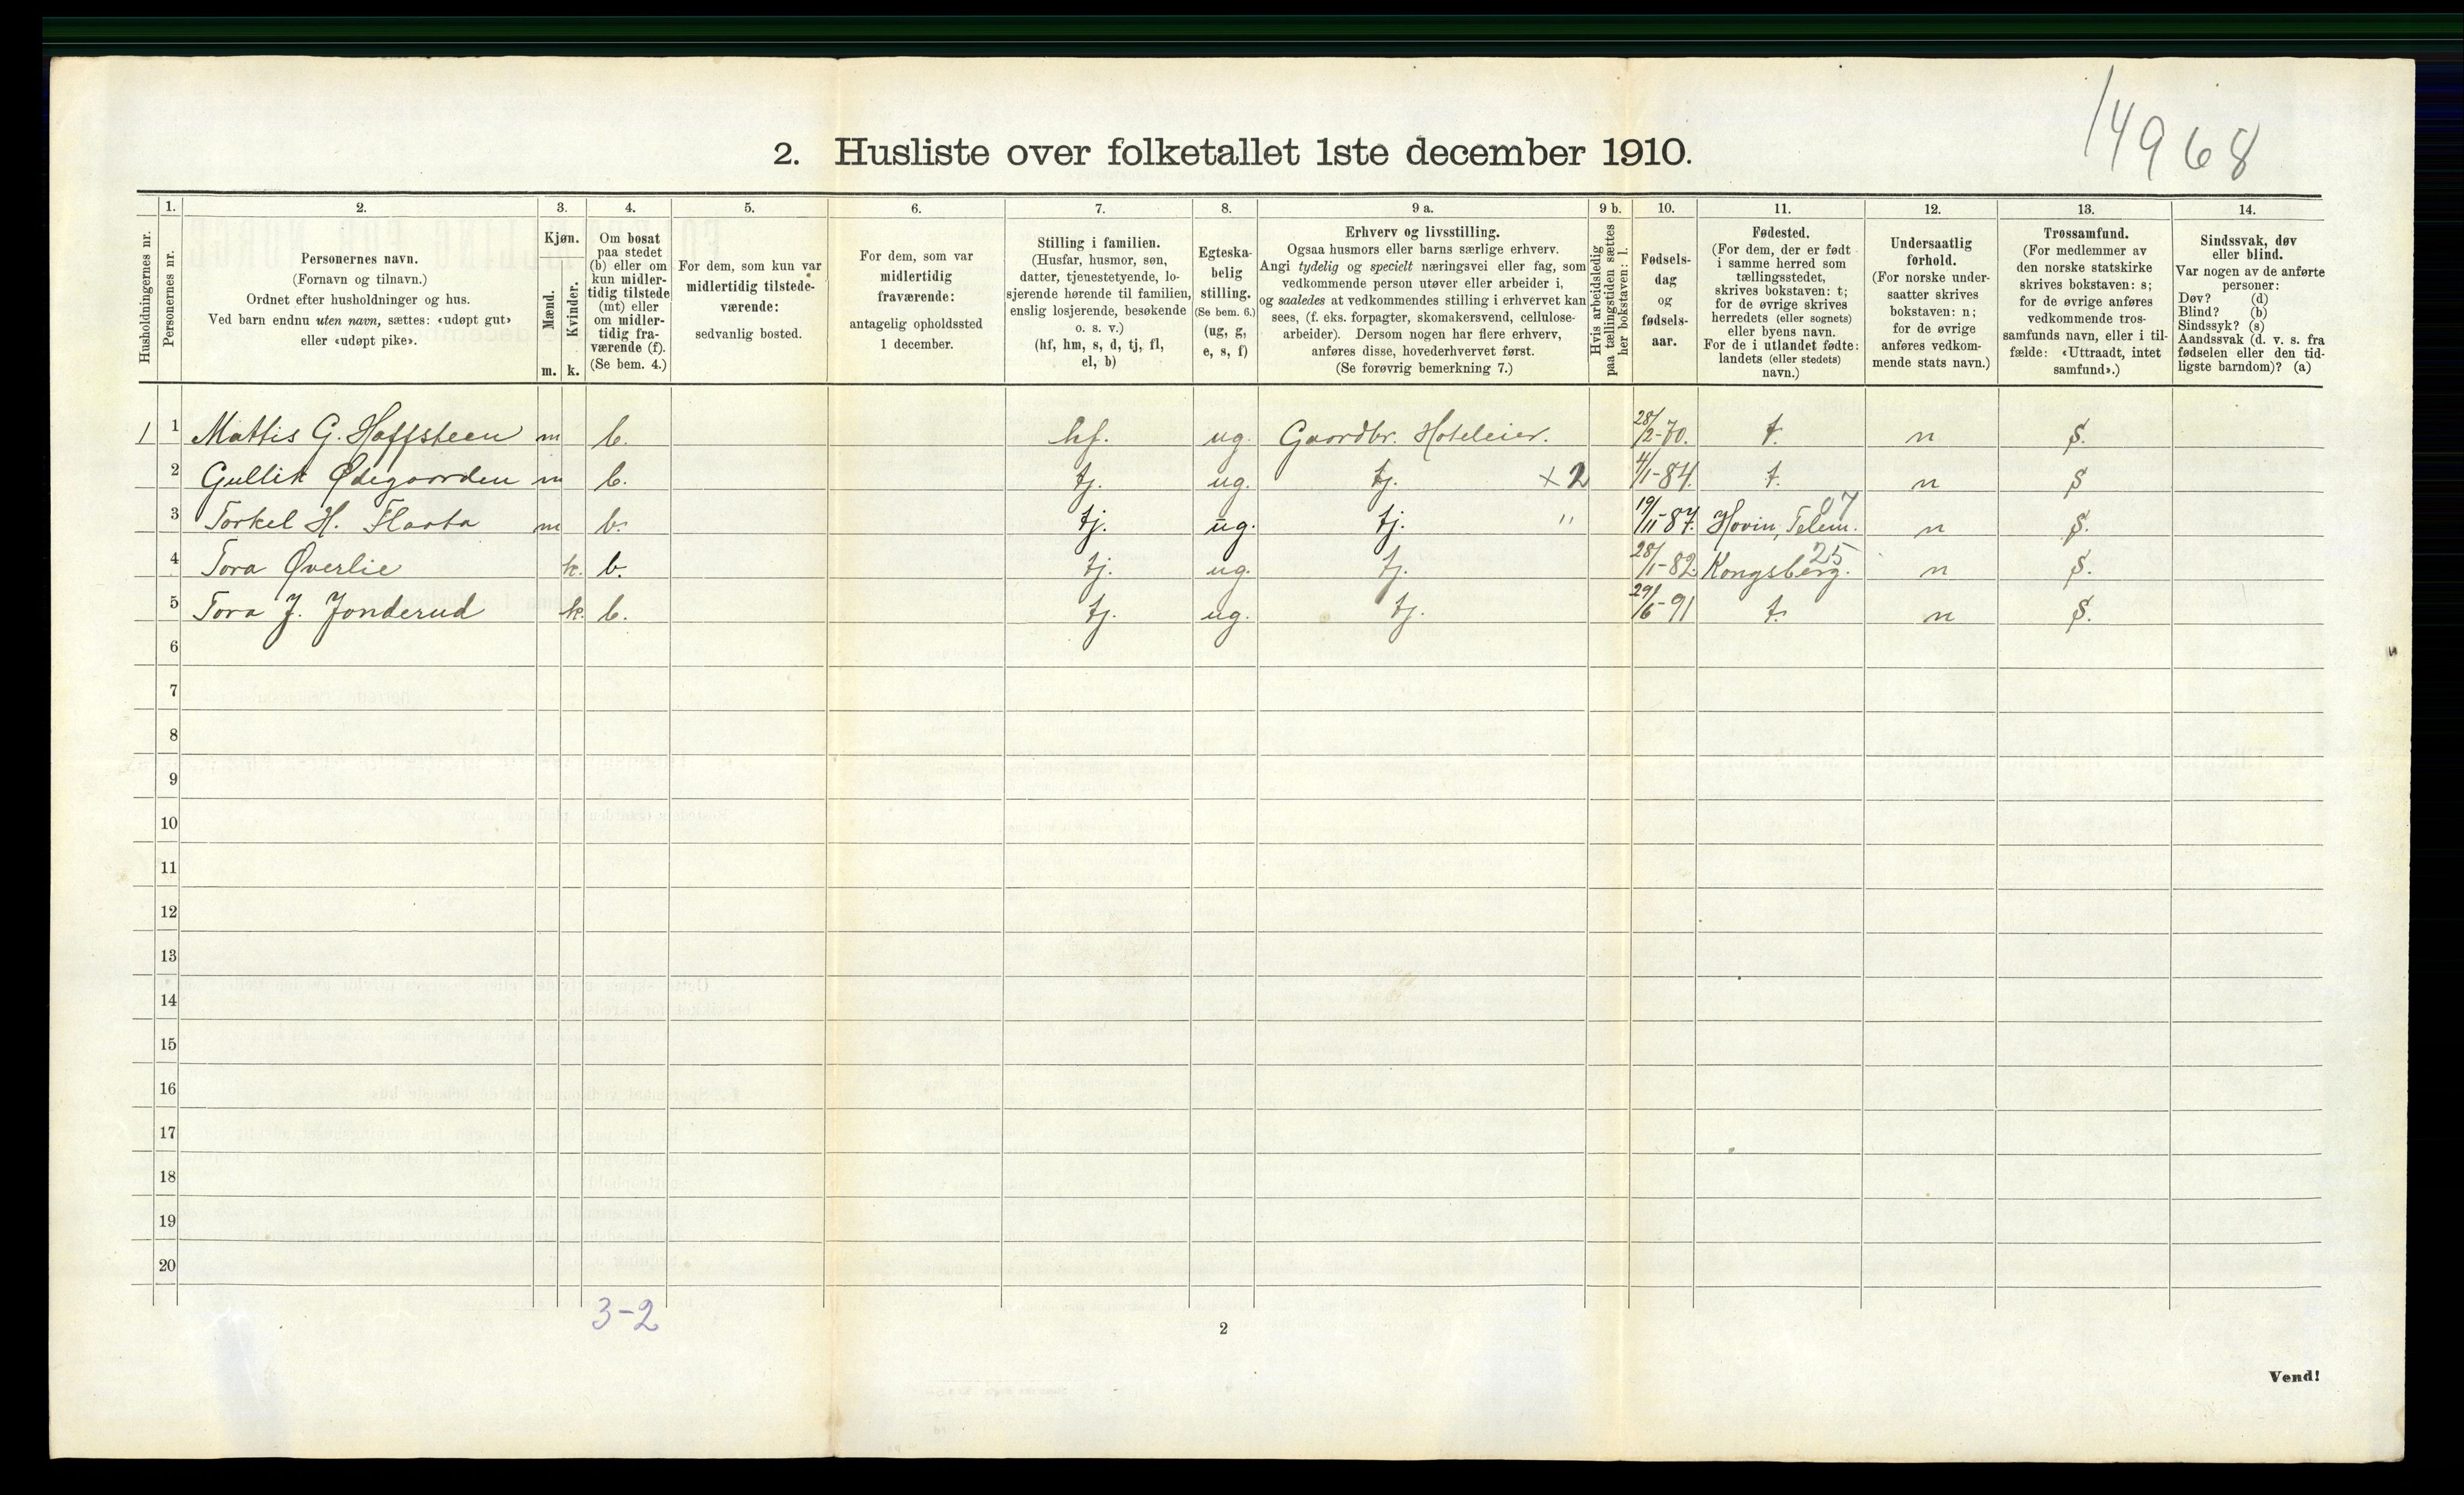 14968
2. Husliste over folketallet 1ste december 1910.
Husholdningernes nr.
1.
Personernes nr.
2.
Personernes navn.
(Fornavn og tilnavn.)
Ordnet efter husholdninger og hus.
Ved barn endnu uten navn, sættes: «udøpt gut»
eller «udøpt pike».
3.
Kjøn.
Mænd.
Kvinder.
m. k.
4.
Om bosat
paa stedet
(b) eller om
kun midler-
tidig tilstede
(mt) eller
om midler-
tidig fra-
værende (f).
(Se bem. 4.)
5.
For dem, som kun var
midlertidig tilstede-
værende:
sedvanlig bosted.
6.
For dem, som var
midlertidig
fraværende:
antagelig opholdssted
1 december.
7.
Stilling i familien.
(Husfar, husmor, søn,
datter, tjenestetyende, lo-
sjerende hørende til familien,
enslig losjerende, besøkende
o. s. v.)
(hf, hm, s, d, tj, fl,
el, b)
8.
Egteska-
belig
stilling.
(Se bem. 6.)
(ug, g,
e, s, f)
9 a.
Erhverv og livsstilling.
Ogsaa husmors eller barns særlige erhverv.
Angi tydelig og specielt næringsvei eller fag, som
vedkommende person utøver eller arbeider i,
og saaledes at vedkommendes stilling i erhvervet kan
sees, (f. eks. forpagter, skomakersvend, cellulose-
arbeider). Dersom nogen har flere erhverv,
anføres disse, hovederhvervet først.
(Se forøvrig bemerkning 7.)
9 b.
Hvis arbeidsledig
paa tællingstiden sættes
her bokstaven: l.
10.
Fødsels-
dag
og
fødsels-
aar.
11.
Fødested.
(For dem, der er født
i samme herred som
tællingsstedet,
skrives bokstaven: t;
for de øvrige skrives
herredets (eller sognets)
eller byens navn.
For de i utlandet fødte:
landets (eller stedets)
navn.)
12.
Undersaatlig
forhold.
(For norske under-
saatter skrives
bokstaven: n;
for de øvrige
anføres vedkom-
mende stats navn.)
13.
Trossamfund.
(For medlemmer av
den norske statskirke
skrives bokstaven: s;
for de øvrige anføres
vedkommende tros-
samfunds navn, eller i til-
fælde: «Uttraadt, intet
samfund».)
14.
Sindssvak, døv
eller blind.
Var nogen av de anførte
personer:
Døv? (d)
Blind? (b)
Sindssyk? (s)
Aandssvak (d. v. s. fra
fødselen eller den tid-
ligste barndom)? (a)
1 1 Mattis G. Hoffsteen m b. hf. ug. Gaardbr. Hoteleier. 28/2-70. t. n S.
2 Gullik Ødegaarden m b. tj. ug. tj. × 2 4/1-84. t. n S
3 Torkel H. Flaata m b. tj. ug. tj. " 19/11-87. Hovin, Telem. 07 n S.
4 Tora Øverlie k. b. tj. ug. tj. 28/1-82. Kongsberg. 25 n S.
5 Tora J. Jonderud k. b. tj. ug. tj. 29/6-91 t. n S.
6
7
8
9
10
11
12
13
14
15
16
17
18
19
20
3-2
2
Vend!